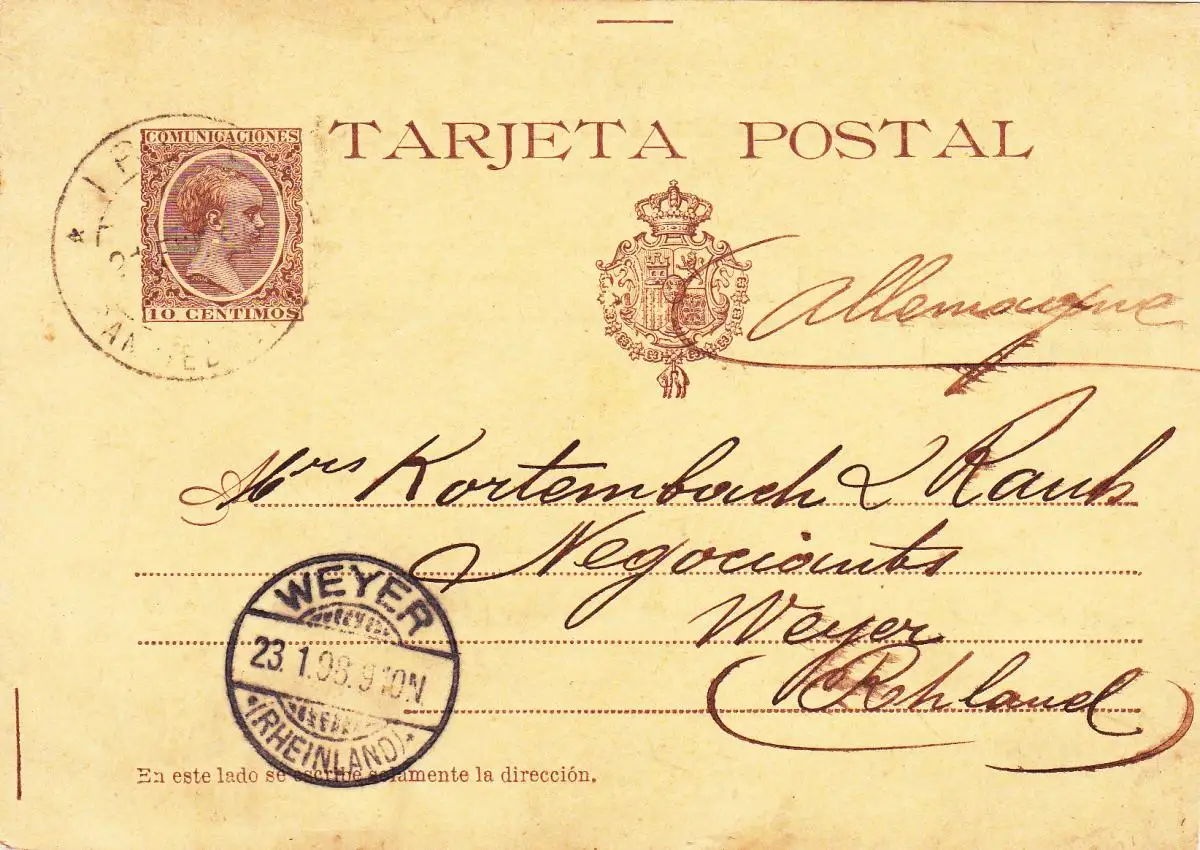 TARJETA POSTAL
COMUNICACIONES
10 CENTIMOS
Allemagne
Mrs Kortembach & Rauh
Negociants
Weyer
Rhland
WEYER
23.1.98. 9 10N.
(RHEINLAND)
En este lado se escribe solamente la dirección.